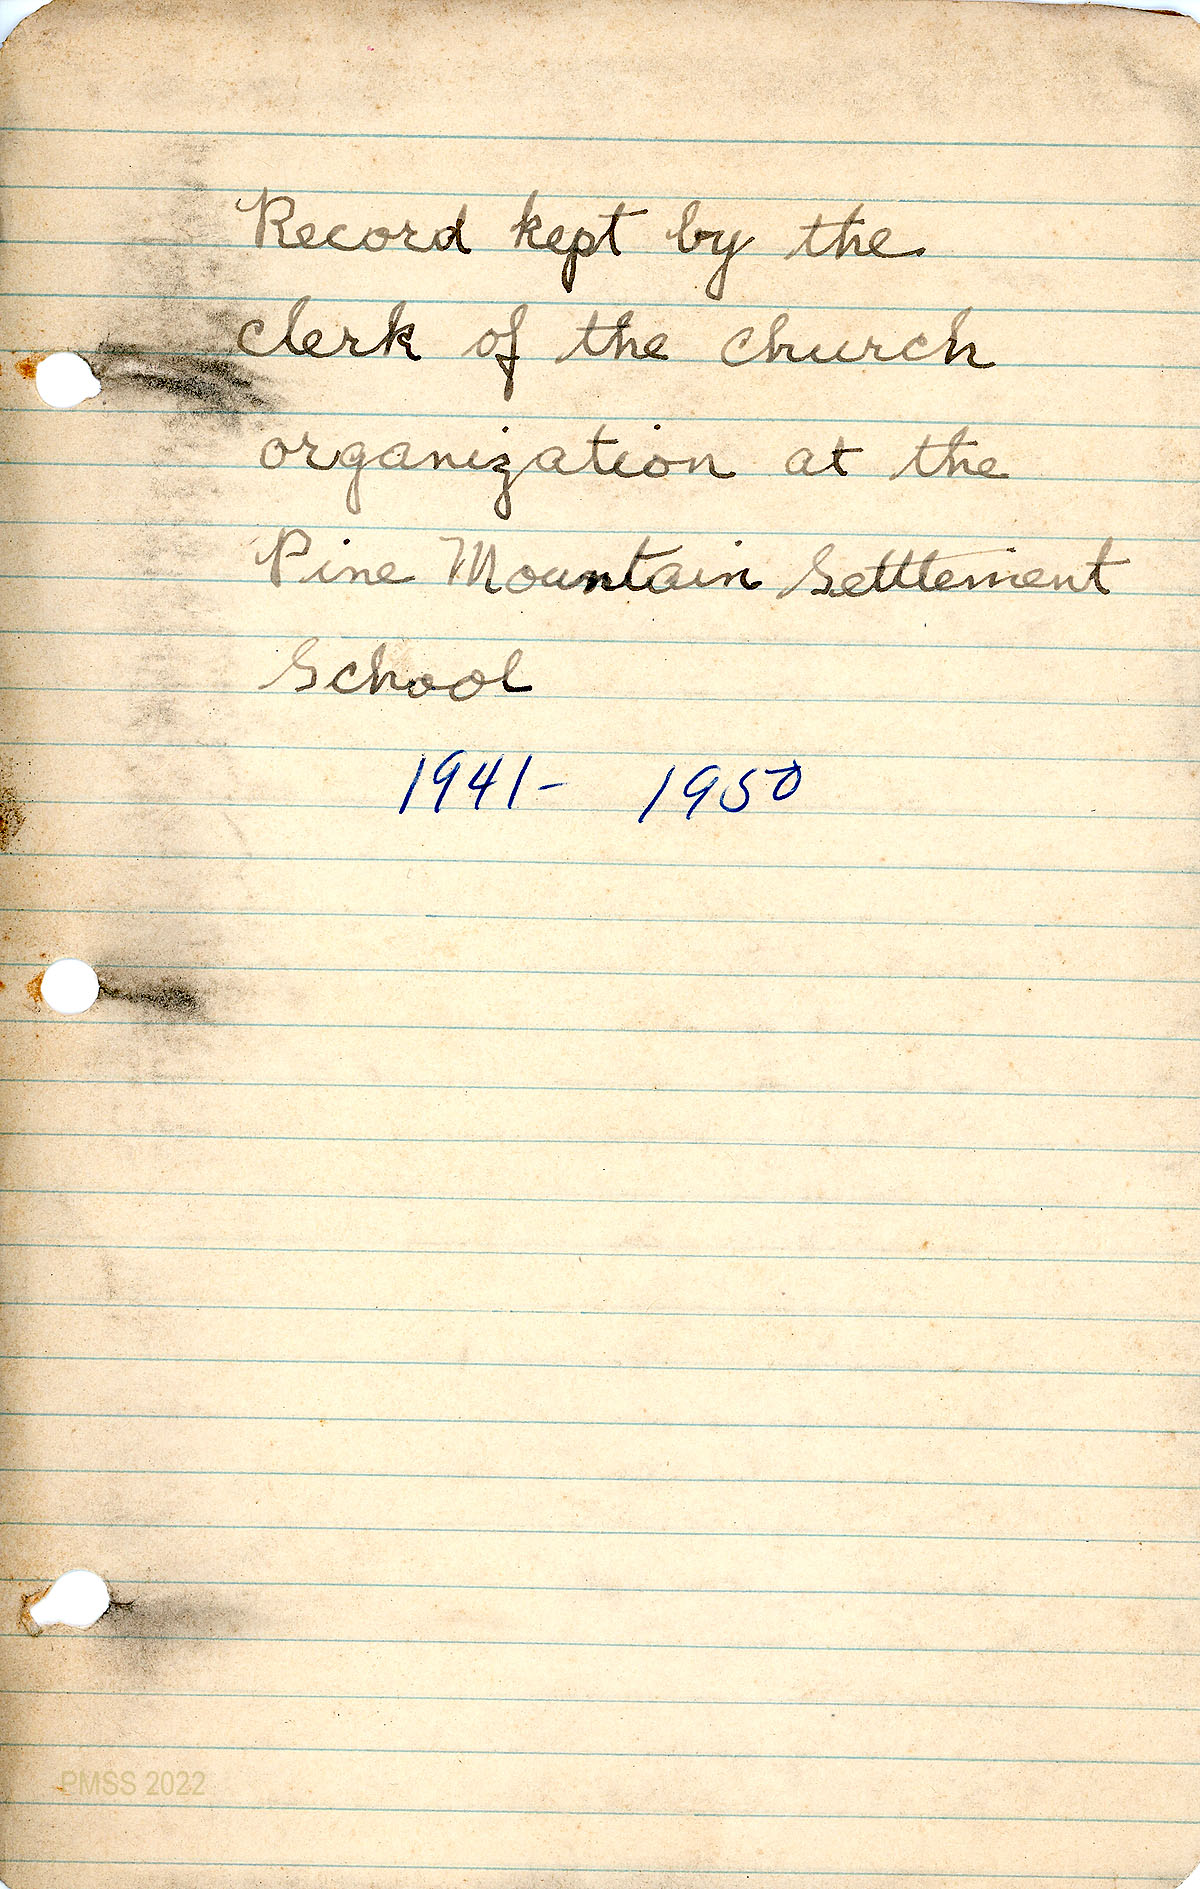 Record kept by the
clerk of the church
organization at the
Pine Mountain Settlement
School
1941- 1950
PMSS 2022